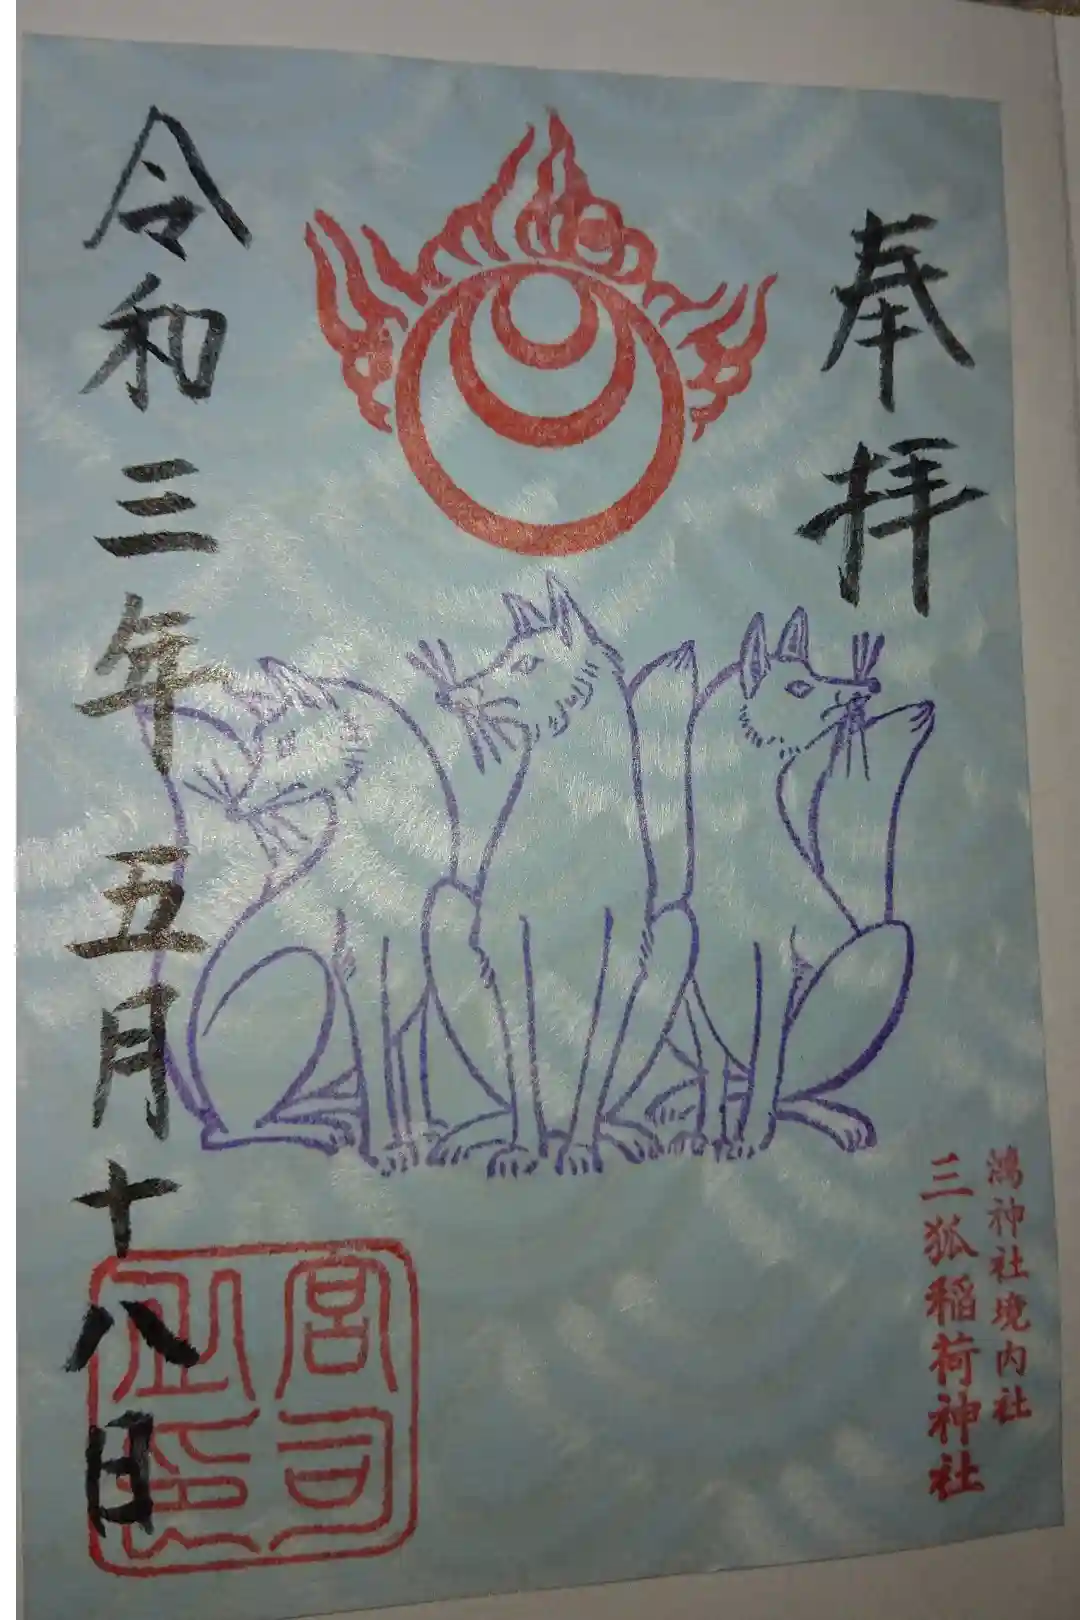 奉拝
鴻神社境内社
三狐稲荷神社
令和三年五月十八日
宮司之印